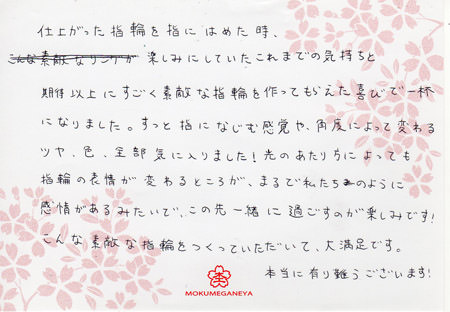 仕上がった指輪を指にはめた時、
こんな素敵なリングが 楽しみにしていたこれまでの気持ちと
期待以上にすごく素敵な指輪を作ってもらえた喜びで一杯
になりました。すっと指になじむ感覚や、角度によって変わる
ツヤ、色、全部気に入りました!光のあたり方によっても
指輪の表情が変わるところが、まるで私たちのように
感情があるみたいで、この先一緒に過ごすのが楽しみです!
こんな素敵な指輪をつくっていただいて、大満足です。
本当に有り難うございます!
MOKUMEGANEYA